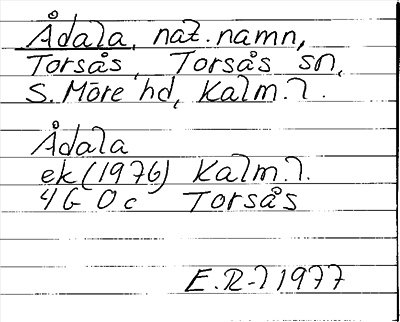 Ådala, nat. namn,
Torsås, Torsås sn,
S. Möre hd, Kalm. l.
Ådala
ek (1976) Kalm. l.
4G 0c Torsås
E. R-l 1977